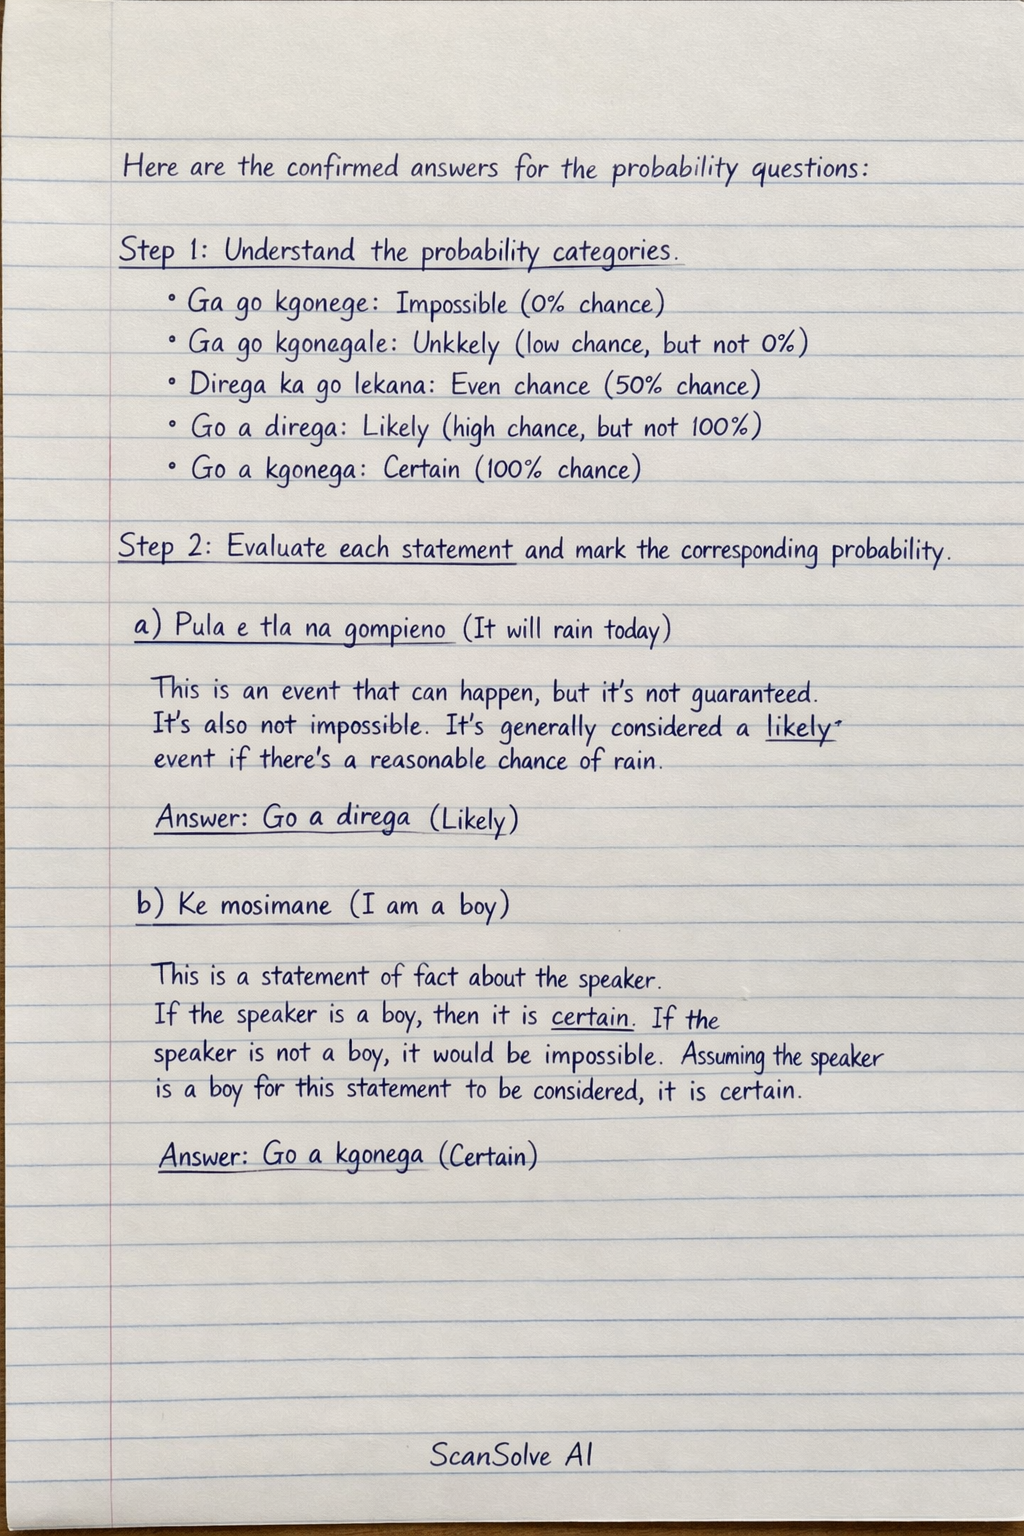 Here are the confirmed answers for the probability questions:
Step 1: Understand the probability categories.
• Ga go kgonege: Impossible (0% chance)
• Ga go kgonegale: Unkkely (low chance, but not 0%)
• Direga ka go lekana: Even chance (50% chance)
• Go a direga: Likely (high chance, but not 100%)
• Go a kgonega: Certain (100% chance)
Step 2: Evaluate each statement and mark the corresponding probability.
a) Pula e tla na gompieno (It will rain today)
This is an event that can happen, but it's not guaranteed.
It's also not impossible. It's generally considered a likely"
event if there's a reasonable chance of rain.
Answer: Go a direga (Likely)
b) Ke mosimane (I am a boy)
This is a statement of fact about the speaker.
If the speaker is a boy, then it is certain. If the
speaker is not a boy, it would be impossible. Assuming the speaker
is a boy for this statement to be considered, it is certain.
Answer: Go a kgonega (Certain)
ScanSolve AI